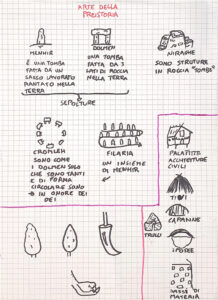 ARTE DELLA
PREISTORIA
MENHIR
É UNA TOMBA
FATTA DA UN
SASSO LAVORATO
PIANTATO NELLA
TERRA
DOLMEN
UNA TOMBA
FATTA DA 3
LATI DI ROCCIA
NELLA TERRA
NURAGHE
SONO STRUTURE
IN ROCCIA "TOMBE"
SEPOLTURE
CROMLEH
SONO COME
I DOLMEN SOLO
CHE SONO TANTI
E DI FORMA
CIRCOLARE SONO
IN ONORE DEI
DEI
FILARIA
UN INSIEME
DI MENHIR
PALAFITTE
ARCHITETTURE
CIVILI
CAPANNE
TRULLI
SASSI DI
MATERIA